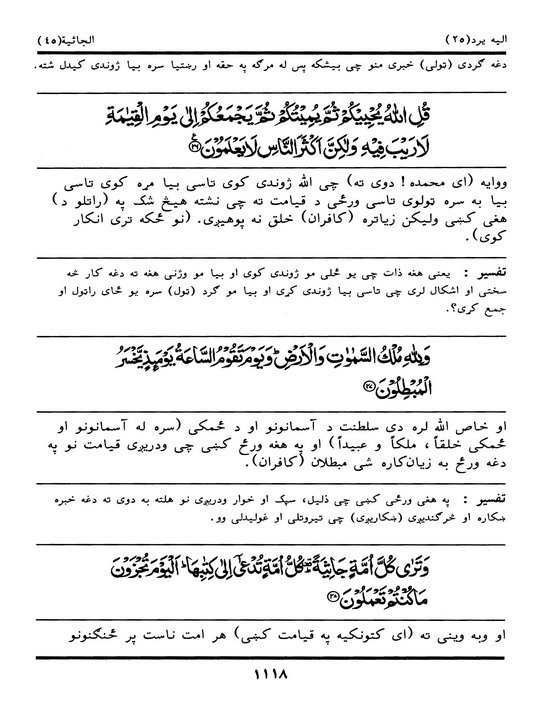 الیه یرد(۲۵) الجاثیة(٤٥)
دغه گردی (تولی) خبری منو چی بیشکه پس له مرگه په حقه او رښتیا سره بیا ژوندی کیدل شته.
قُلِ اللّٰهُ يُحْيِيْكُمْ ثُمَّ يُمِيْتُكُمْ ثُمَّ يَجْمَعُكُمْ اِلٰى يَوْمِ الْقِيٰمَةِ
لَا رَيْبَ فِيْهِ وَلٰكِنَّ اَكْثَرَ النَّاسِ لَا يَعْلَمُوْنَ ﴿۲۶﴾
ووایه (ای محمده! دوی ته) چی الله ژوندی کوی تاسی بیا مړه کوی تاسی
بیا به سره تولوی تاسی ورځی د قیامت ته چی نشته هیڅ شک په (راتلو د)
هغی کښی ولیکن زیاتره (کافران) خلق نه پوهیږی. (نو ځکه تری انکار
کوی).
تفسیر : یعنی هغه ذات چی یو ځلی مو ژوندی کوی او بیا مو وژنی هغه ته دغه کار څه
سختی او اشکال لری چی تاسی بیا ژوندی کړی او بیا مو گرد (تول) سره یو ځای راتول او
جمع کړی؟.
وَلِلّٰهِ مُلْكُ السَّمٰوٰتِ وَالْاَرْضِ ؕ وَيَوْمَ تَقُوْمُ السَّاعَةُ يَوْمَىِٕذٍ يَّخْسَرُ
الْمُبْطِلُوْنَ ﴿۲۷﴾
او خاص الله لره دی سلطنت د آسمانونو او د ځمکی (سره له آسمانونو او
ځمکی خلقاً ، ملکاً و عبیداً) او په هغه ورځ کښی چی ودریږی قیامت نو په
دغه ورځ به زیان‌کاره شی مبطلان (کافران).
تفسیر : په هغی ورځی کښی چی ذلیل، سپک او خوار ودریږی نو هلته به دوی ته دغه خبره
ښکاره او څرگندیږی (ښکاریږی) چی تیروتلی او غولیدلی وو.
وَتَرٰى كُلَّ اُمَّةٍ جَاثِيَةً ۫ كُلُّ اُمَّةٍ تُدْعٰٓى اِلٰى كِتٰبِهَا ؕ اَلْيَوْمَ تُجْزَوْنَ
مَا كُنْتُمْ تَعْمَلُوْنَ ﴿۲۸﴾
او وبه وینی ته (ای کتونکیه په قیامت کښی) هر امت ناست پر ځنگنونو
۱۱۱۸